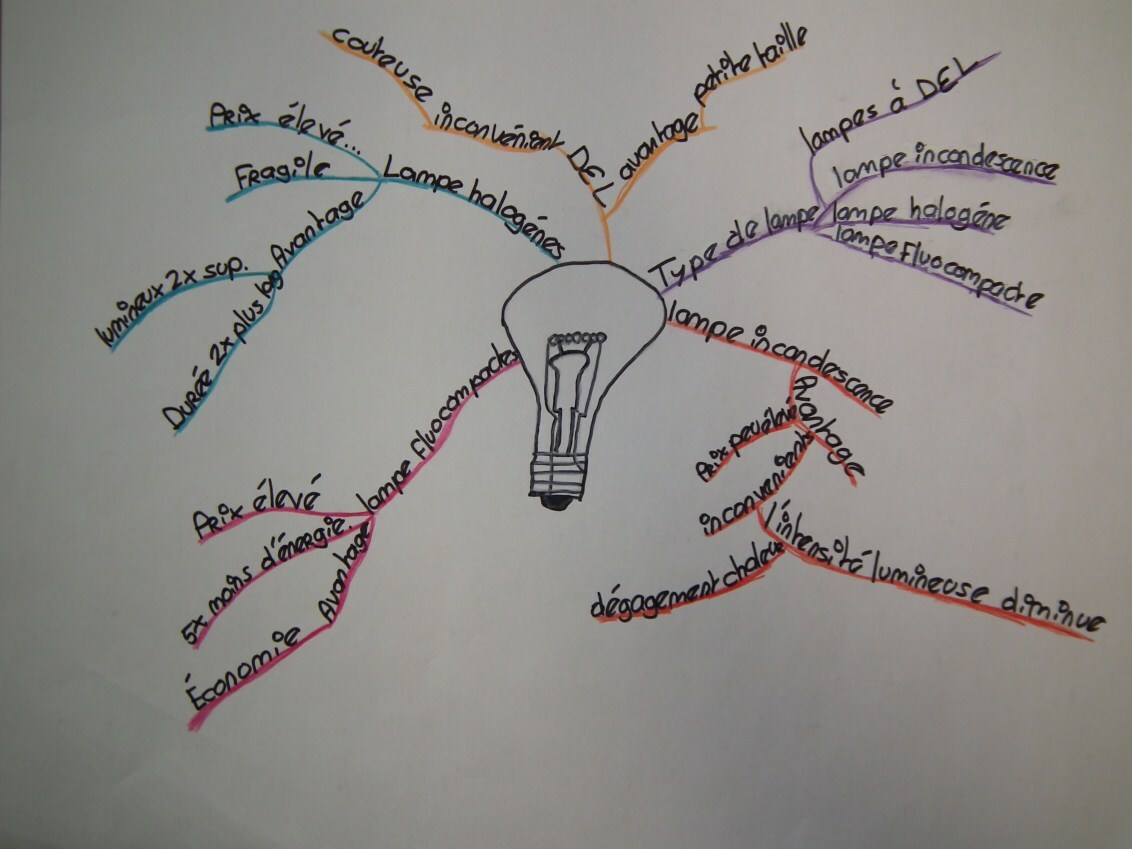 couteuse
inconvénient
DEL
avantage
petite taille
Prix élevé...
Fragile
Avantage
lumineux 2x sup.
Durée 2x plus log
Lampe halogénes
Type de lampe
lampes à DEL
lampe incandescence
lampe halogéne
lampe fluocompacte
lampe incandescence
Avantage
Prix peu élevé
inconvenients
l'intensité lumineuse diminue
dégagement chaleur
lampe fluocompactes
Prix élevé
5x moins d'énergie.
Avantage
Économie